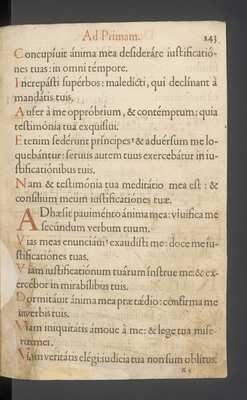 Ad Primam. 243
Concupiuit ánima mea desideráre iustificatió-
nes tuas: in omni témpore.
Increpásti supérbos: maledícti, qui declínant à
mandátis tuis.
Aufer à me oppróbrium, & contémptum: quia
testimónia tua exquisíui.
Etenim sedérunt príncipes, & aduérsum me lo-
quebántur: seruus autem tuus exercebátur in iu-
stificatiónibus tuis.
Nam & testimónia tua meditátio mea est: &
consílium meum iustificatiónes tuæ.
ADhæsit pauiménto ánima mea: viuífica me
secúndum verbum tuum.
Vias meas enunciáui, exaudísti me: doce me iu-
stificatiónes tuas.
Viam iustificatiónum tuárum ínstrue me: & ex-
ercébor in mirabílibus tuis.
Dormitáuit ánima mea præ tǽdio: confírma me
in verbis tuis.
Viam iniquitátis ámoue à me: & lege tua mise-
rére mei.
Viam veritátis elégi: iudícia tua non sum oblítus.